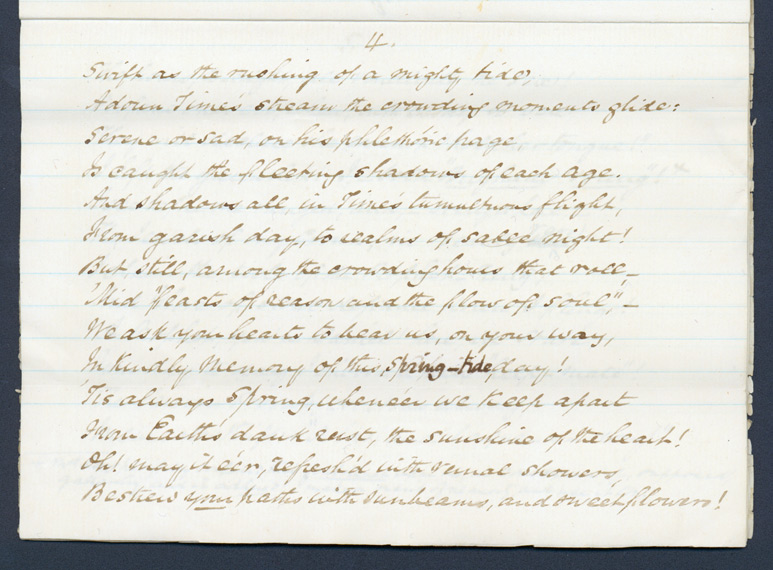 4.
Swift as the rushing of a mighty tide,
Adown Time's stream the crowding moments glide:
Serene or sad, on his plethoric page
Is caught the fleeting shadows of each age.
And shadows all, in Time's tumultuous flight,
From garish day, to realms of sable night!
But, still, among the crowding hours that roll,—
'Mid "feasts of reason and the flow of soul",—
We ask your hearts to bear us, on your way,
In kindly memory of this spring-tide day!
'Tis always Spring, whene'er we keep apart
From Earth's dank rust, the sunshine of the heart!
Oh! may it e'er, refresh'd with vernal showers,
Beshew your paths with sunbeams, and sweet flowers!